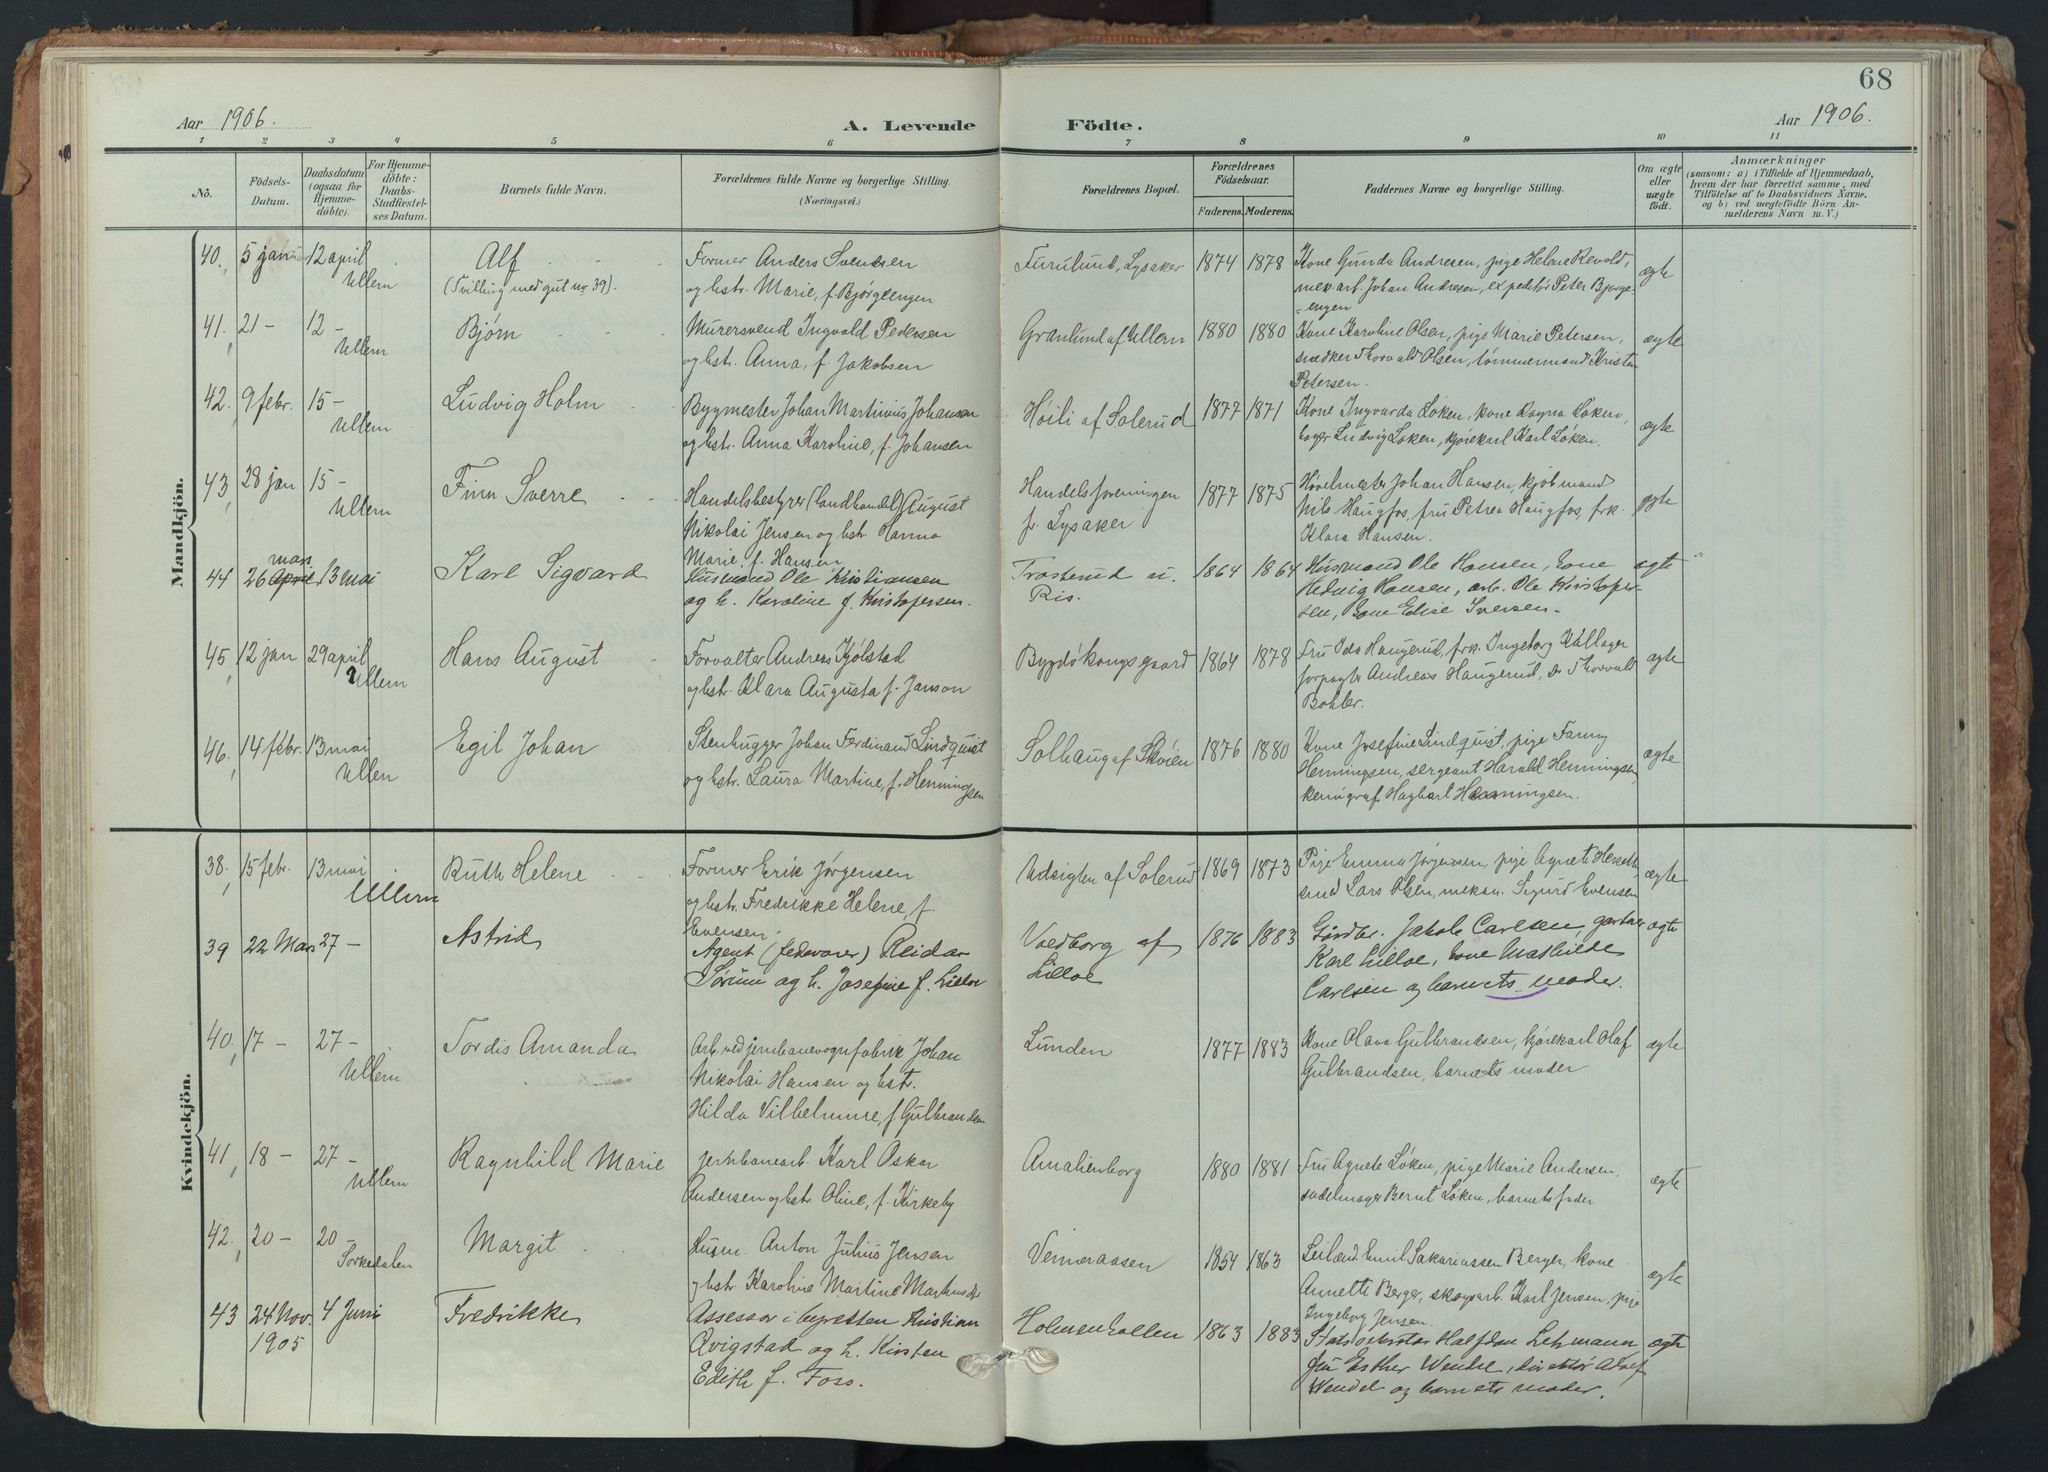 68
Aar 1906.
A. Levende
Födte.
Aar 1906.
1 2 3 4 5 6 7 8 9 10 11
No.
Födsels-
Datum.
Daabsdatum
(ogsaa for
Hjemme-
döbte).
For Hjemme-
döbte:
Daabs-
Stadfæstel-
ses Datum.
Barnets fulde Navn.
Forældrenes fulde Navne og borgerlige Stilling.
(Næringsvei.)
Forældrenes Bopæl.
Forældrenes
Födselsaar.
Faderens. Moderens.
Faddernes Navne og borgerlige Stilling.
Om ægte
eller
uægte
födt.
Anmærkninger
(saasom: a) i Tilfælde af Hjemmedaab,
hvem der har forrettet samme, med
Tilföielse af to Daabsvidners Navne,
og b) ved uægtefödte Börn An-
melderens Navn m. V.)
Mandkjön.
40, 5 janu 12 april
Ullern
Alf
(Tvilling med gut nr 39).
Former Anders Svendsen
og hstr. Marie, f. Bjørgeengen
Furulund, Lysaker
1874 1878
Kone Gunda Andresen, pige Helene Revold,
mek. arb. Johan Andresen, expeditør Peter Bjørge-
engen
ægte
41, 21 – 12 –
Ullern
Bjørn
Murersvend Ingvald Pedersen
og hstr. Anna, f. Jakobsen
Granlund af Ullern
1880 1880
Kone Karoline Olsen, pige Marie Petersen,
snedker Thorvald Olsen, tømmermand Kristen
Petersen.
ægte
42, 9 febr. 15 –
Ullern
Ludvig Holm
Bygmester Johan Martinius Johansen
og hstr. Anna Karoline, f. Johansen
Høili af Solerud
1877 1871
Kone Ingvarda Løken, kone Ragna Løken,
bager Ludvig Løken, kjørekarl Karl Løken.
ægte
43, 28 jan 15 –
Ullern
Finn Sverre
Handelsbestyrer (landhandel) August
Nikolai Jensen og hstr. Hanna
Marie, f. Hansen
Handelsforeningen
pr. Lysaker
1877 1875
Høvelmester Johan Hansen, kjøbmand
Nils Haugfos, fru Petrea Haugfos, frk.
Klara Hansen.
ægte
44 26 april mars 13 mai
Karl Sigvard
Husmand Ole Kristiansen
og h. Karoline f. Kristofersen.
Trosterud u.
Ris.
1864 1864
Husmand Ole Hansen, kone
Hedvig Hansen, arb. Ole Kristofer-
sen, kone Elise Iversen.
ægte
45, 12 jan 29 april
Ullern
Hans August
Forvalter Andreas Kjølstad
og hstr. Klara Augusta f. Janson
Bygdø kongsgaard
1864 1878
Fru Oda Haugerud, frk. Ingeborg Kallager
forpagter Andreas Haugerud, Dr Thorvald
Bohler.
ægte
46, 14 febr. 13 mai
Ullern
Egil Johan
Stenhugger Johan Ferdinand Lindquist
og hstr. Laura Martine, f. Henningsen
Solhaug af Skøien
1876 1880
Kone Josefine Lindquist, pige Fanny
Henningsen, sergeant Harald Henningsen
kemigraf Hagbart Henningsen.
ægte
Kvindekjön.
38, 15 febr. 13 mai
Ullern
Ruth Helene
Former Erik Jørgensen
og hstr. Fredrikke Helene, f.
Evensen.
Udsigten af Solerud
1869 1873
Pige Emma Jørgensen, pige Agnete
smed Lars Olsen, Sigurd Evensen
ægte
39 22 Mars 27 –
Astrid
Agent (fedevarer) Reidar
Sørum og h. Josefine f. Lilloe
Voldborg af
Lilloe
1876 1883
Gårdbr. Jakob Carlsen, gartner
Karl Lilloe, kone Mathilde
Carlsen og barnets moder.
ægte
40, 17 – 27 –
Ullern
Tordis Amanda
Arb. ved jernbanevognfabrik Johan
Nikolai Hansen og hstr.
Hilda Vilhelmine, f Gulbrandsen
Lunden
1877 1883
Kone Olava Gulbrandsen, kjørekarl Olaf
Gulbrandsen, barnets moder
ægte
41, 18 – 27 –
Ullern
Ragnhild Marie
jernbanearb. Karl Oskar
Andersen og hstr. Oline, f. Kirkeby
Amalienborg
1880 1881
Fru Agnete Løken, pige Marie Andersen.
sadelmager Bernt Løken, barnets fader
ægte
42, 20 – 20 –
Sørkedalen
Margit
Husm. Anton Julius Jensen
og hstr. Karoline Martine
1854 1863
Emil Sakariassen Berger, kone
Annette Berger, skogsarb. Karl Jensen, pige
Ingeborg Jensen.
ægte
43 24 Nov. 4 Juni
1905
Fredrikke
Assessor i byretten Kristian
Qvigstad og h. Kirsten
Edith f. Foss.
Holmenkollen
1863 1883
Statssekretær Halfdan Lehmann
fru Esther Wendel, direktør Adolf
Wendel og barnets moder.
ægte